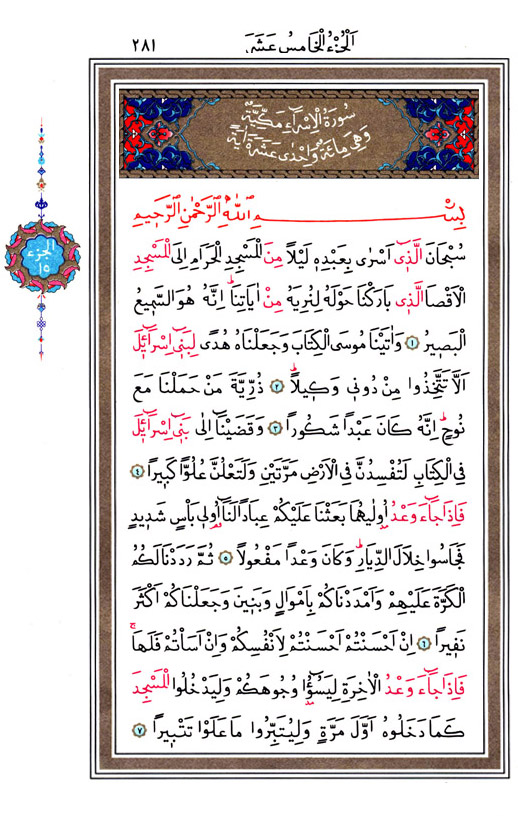 اَلْجُزْءُ الْخَامِسُ عَشَرَ
٢٨١
سُورَةُ الْاِسْرَاءِ مَكِّيَّةٌ
وَهِيَ مِائَةٌ وَاِحْدٰى عَشْرَةَ اٰيَةً
الجزء
١٥
بِسْمِ اللّٰهِ الرَّحْمٰنِ الرَّحِيمِ
سُبْحَانَ الَّذٖٓي اَسْرٰى بِعَبْدِهٖ لَيْلاً مِنَ الْمَسْجِدِ الْحَرَامِ اِلَى الْمَسْجِدِ
الْاَقْصَا الَّذٖي بَارَكْنَا حَوْلَهُ لِنُرِيَهُ مِنْ اٰيَاتِنَاۜ اِنَّهُ هُوَ السَّمٖيعُ
الْبَصٖيرُ ﴿١﴾ وَاٰتَيْنَا مُوسَى الْكِتَابَ وَجَعَلْنَاهُ هُدًى لِبَنٖٓي اِسْرَٓائٖلَ
اَلَّا تَتَّخِذُوا مِنْ دُونٖي وَكٖيلاًۜ ﴿٢﴾ ذُرِّيَّةَ مَنْ حَمَلْنَا مَعَ
نُوحٍۜ اِنَّهُ كَانَ عَبْداً شَكُوراً ﴿٣﴾ وَقَضَيْنَٓا اِلٰى بَنٖٓي اِسْرَٓائٖلَ
فِي الْكِتَابِ لَتُفْسِدُنَّ فِي الْاَرْضِ مَرَّتَيْنِ وَلَتَعْلُنَّ عُلُوًّا كَبٖيراً ﴿٤﴾
فَاِذَا جَٓاءَ وَعْدُ اُو۫لٰيهُمَا بَعَثْنَا عَلَيْكُمْ عِبَاداً لَنَٓا اُو۬لٖي بَأْسٍ شَدٖيدٍ
فَجَاسُوا خِلَالَ الدِّيَارِۜ وَكَانَ وَعْداً مَفْعُولاً ﴿٥﴾ ثُمَّ رَدَدْنَا لَكُمُ
الْكَرَّةَ عَلَيْهِمْ وَاَمْدَدْنَاكُمْ بِاَمْوَالٍ وَبَنٖينَ وَجَعَلْنَاكُمْ اَكْثَرَ
نَفٖيراً ﴿٦﴾ اِنْ اَحْسَنْتُمْ اَحْسَنْتُمْ لِاَنْفُسِكُمْ وَاِنْ اَسَأْتُمْ فَلَهَاۜ
فَاِذَا جَٓاءَ وَعْدُ الْاٰخِرَةِ لِيَسُٓؤُ۫ا وُجُوهَكُمْ وَلِيَدْخُلُوا الْمَسْجِدَ
كَمَا دَخَلُوهُ اَوَّلَ مَرَّةٍ وَلِيُتَبِّرُوا مَا عَلَوْا تَتْبٖيراً ﴿٧﴾